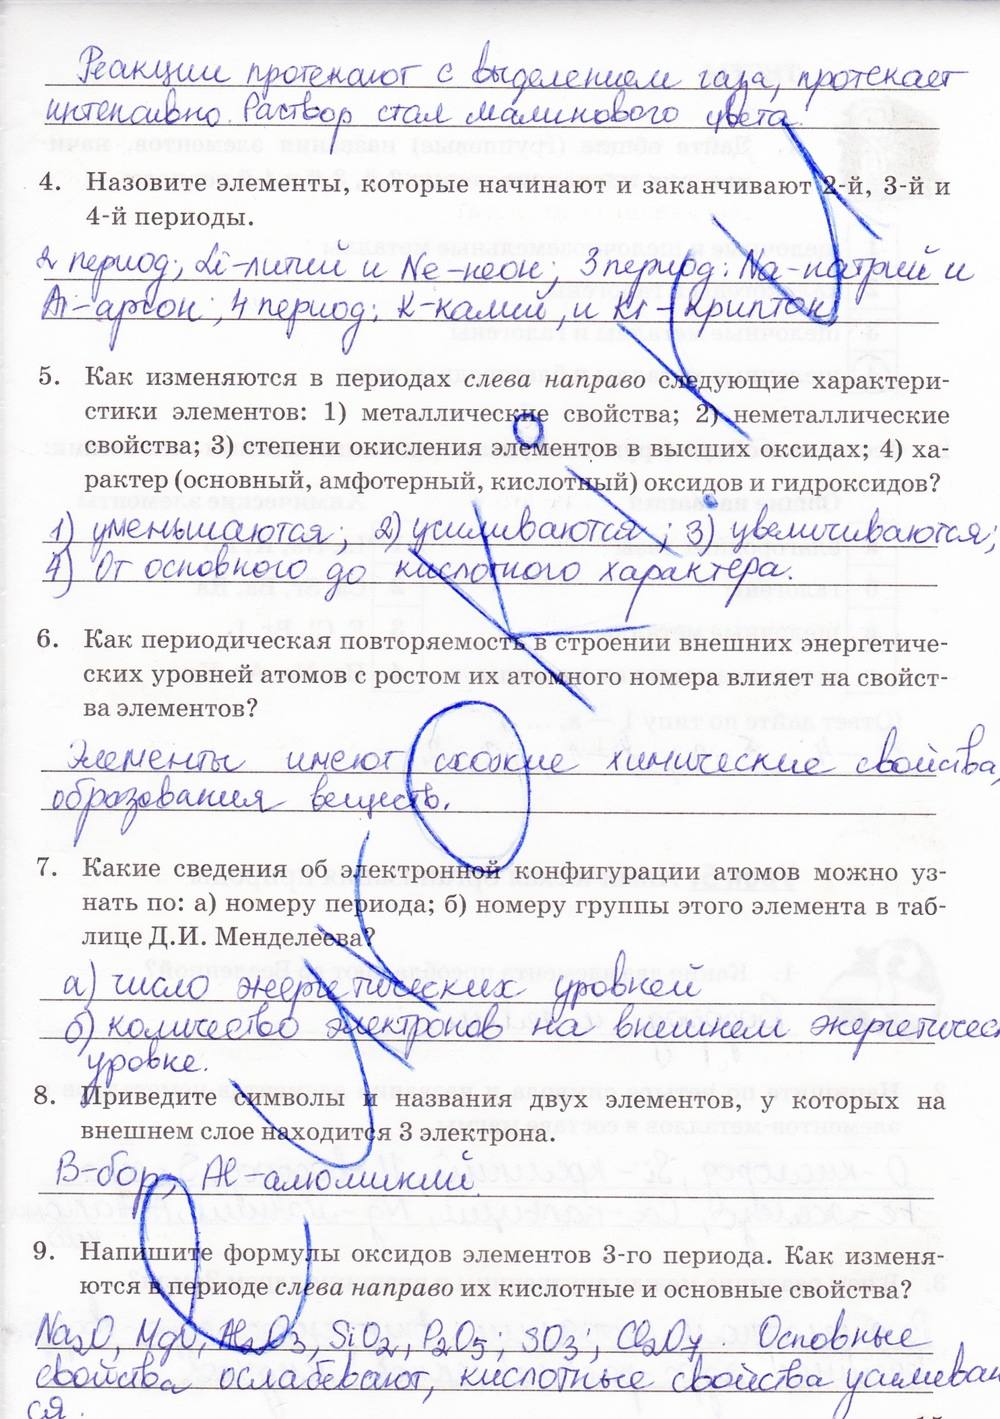 Реакции протекают с выделением газа, протекает
интенсивно. Раствор стал малинового цвета.
4. Назовите элементы, которые начинают и заканчивают 2-й, 3-й и
4-й периоды.
2 период; Li-литий и Ne-неон; 3 период: Na-натрий и
Ar-аргон; 4 период: K-калий, и Kr-криптон.
5. Как изменяются в периодах слева направо следующие характери-
стики элементов: 1) металлические свойства; 2) неметаллические
свойства; 3) степени окисления элементов в высших оксидах; 4) ха-
рактер (основный, амфотерный, кислотный) оксидов и гидроксидов?
1) уменьшаются; 2) усиливаются; 3) увеличиваются;
4) От основного до кислотного характера.
6. Как периодическая повторяемость в строении внешних энергетиче-
ских уровней атомов с ростом их атомного номера влияет на свойст-
ва элементов?
Элементы имеют схожие химические свойства,
образования веществ.
7. Какие сведения об электронной конфигурации атомов можно уз-
нать по: а) номеру периода; б) номеру группы этого элемента в таб-
лице Д.И. Менделеева?
а) число энергетических уровней
б) количество электронов на внешнем энергетичес
уровне.
8. Приведите символы и названия двух элементов, у которых на
внешнем слое находится 3 электрона.
B-бор, Al-алюминий.
9. Напишите формулы оксидов элементов 3-го периода. Как изменя-
ются в периоде слева направо их кислотные и основные свойства?
Na2O, MgO, Al2O3, SiO2, P2O5; SO3; Cl2O7. Основные
свойства ослабевают, кислотные свойства усиливают
ся.